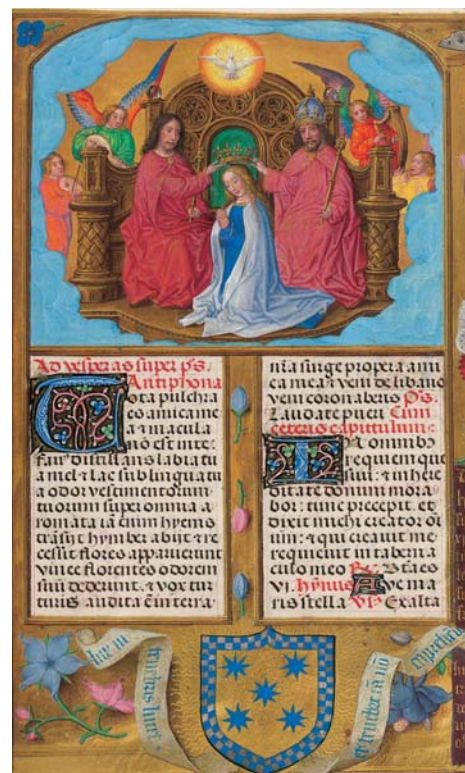 Ad vesperas super ps.
Antiphona
Tota pulchra
es amica me
a & macula
nō est in te:
fauꝰ distillans labia tu
a mel & lac sub lingua tu
a odor vestimentorum
tuorum super omnia a
romata iā enim hyems
trāsijt hymber abijt & re
cessit flores apparuerunt
vinee florentes odorem
suū dederunt. & vox tur
turis audita ē in terra
nr̄a surge propera ami
ca mea & veni de libano
veni coronaberis Ps.
Laudate pueri Cum
ceteris capitulum:
In omnibꝫ
requiem que
siui: & in here
ditate domini mora
bor: tunc precepit. et
dixit michi creator oī
um: & qui creauit me
requieuit in taberna
culo meo R. Btā es
vi. hȳnus Aue ma
ris stella V. Exalta
lux in
tenebris lucet
et tenebre eā nō